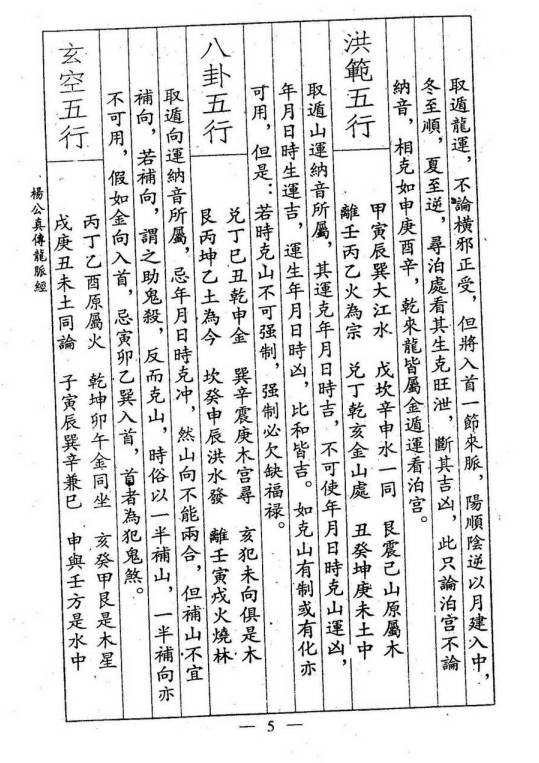 取遁龍運，不論橫邪正受，但將入首一節來脈，陽順陰逆以月建入中，
冬至順，夏至逆，尋泊處看其生克旺泄，斷其吉凶，此只論泊宮不論
納音，相克如申庚酉辛，乾來龍皆屬金遁運看泊宮。
洪範五行
甲寅辰巽大江水　戊坎辛申水一同　艮震己山原屬木
離壬丙乙火為宗　兌丁乾亥金山處　丑癸坤庚未土中
取遁山運納音所屬，其運克年月日時吉，不可使年月日時克山運凶，
年月日時生運吉，運生年月日時凶，比和皆吉。如克山有制或有化亦
可用，但是：若時克山不可强制，强制必欠缺福禄。
八卦五行
兌丁巳丑乾申金　巽辛震庚木宮尋　亥犯未向俱是木
艮丙坤乙土為今　坎癸申辰洪水發　離壬寅戌火燒林
取遁向運納音所屬，忌年月日時克冲，然山向不能兩合，但補山不宜
補向，若補向，謂之助鬼殺，反而克山，時俗以一半補山，一半補向亦
不可用，假如金向入首，忌寅卯乙巽入首，首者為犯鬼煞。
玄空五行
丙丁乙酉原屬火　乾坤卯午金同坐　亥癸甲艮是木星
戌庚丑未土同論　子寅辰巽辛兼巳　申與壬方是水中
楊公真傳龍脈經
— 5 —